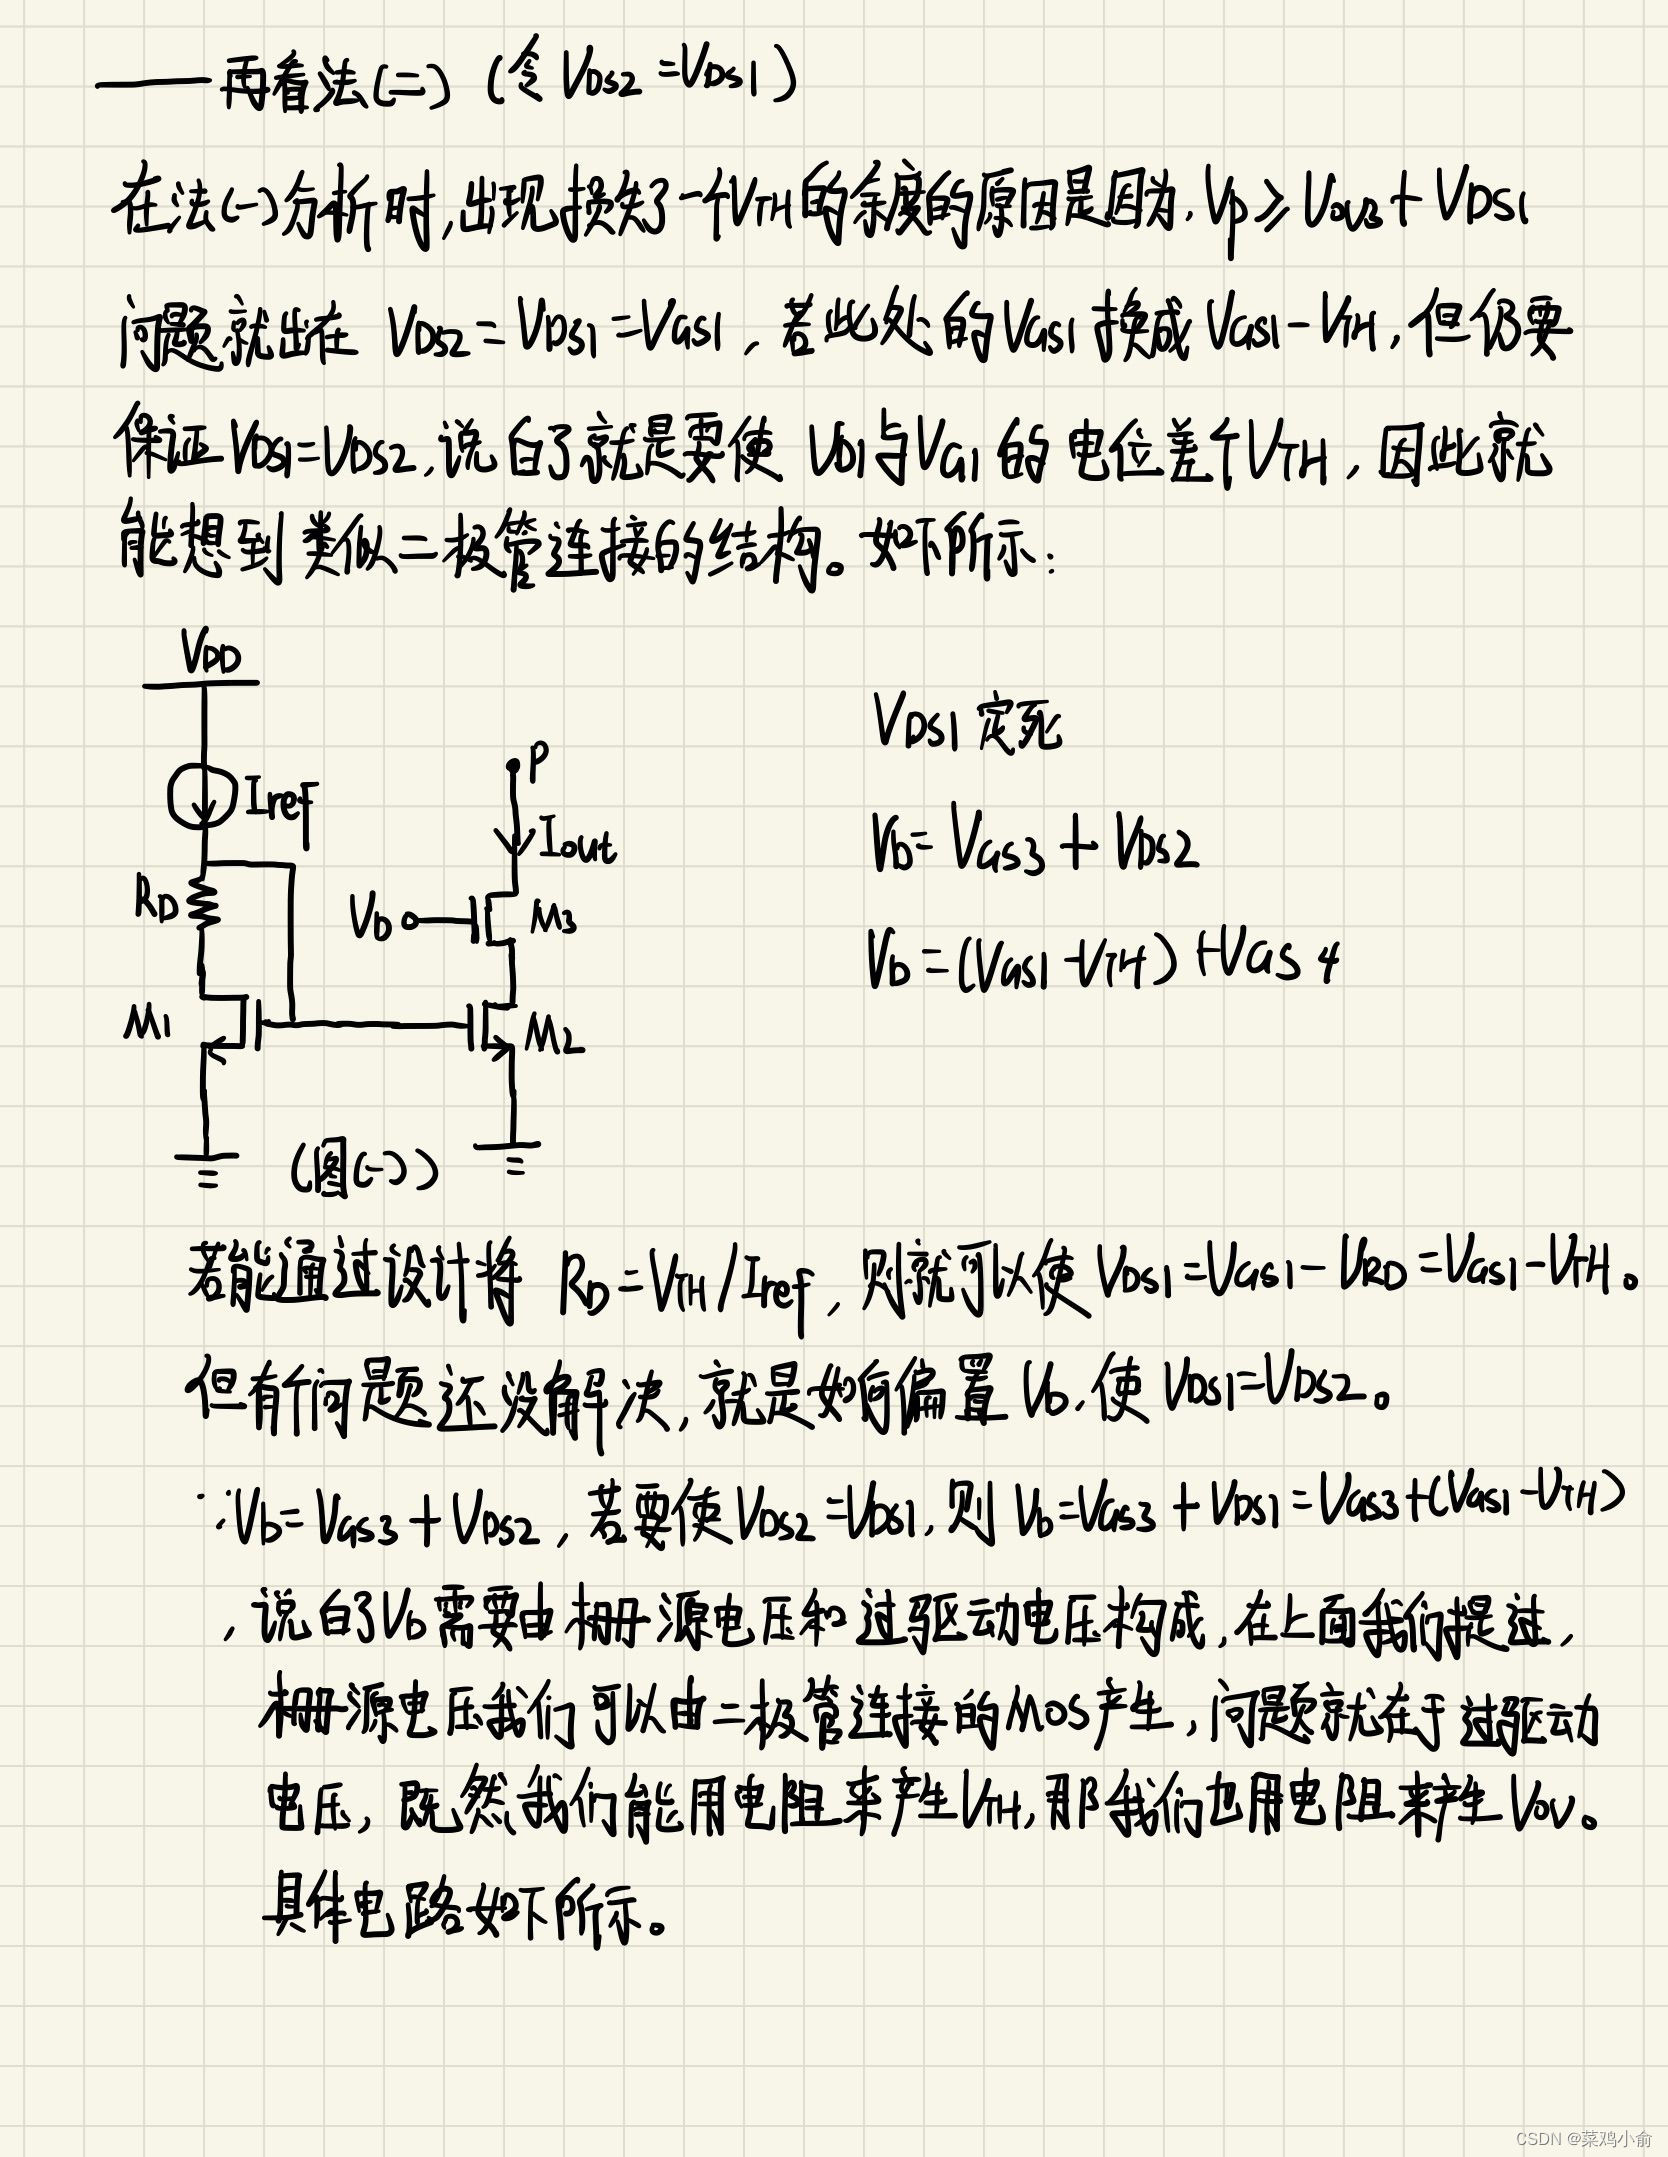 ——再看法(二) (令 VDS2=VDS1)
在法(一)分析时,出现损失了一个VTH的余度的原因是因为,Vp≥Vov3+VDS1
问题就出在 VDS2=VDS1=VGS1,若此处的VGS1换成VGS1-VTH,但仍要
保证VDS1=VDS2,说白了就是要使 VD1与VG1的电位差个VTH,因此就
能想到类似二极管连接的结构。如下所示:
VDD
Iref
RD
M1
P
Iout
Vb
M3
M2
(图(一))
VDS1定死
Vb=VGS3+VDS2
Vb=(VGS1-VTH)+VGS4
若能通过设计将 RD=VTH/Iref,则就可以使VDS1=VGS1-VRD=VGS1-VTH。
但有个问题还没解决,就是如何偏置Vb,使VDS1=VDS2。
∵Vb=VGS3+VDS2,若要使VDS2=VDS1,则Vb=VGS3+VDS1=VGS3+(VGS1-VTH)
,说白了Vb需要由栅源电压和过驱动电压构成,在上面我们提过,
栅源电压我们可以由二极管连接的MOS产生,问题就在于过驱动
电压,既然我们能用电阻来产生VTH,那我们也用电阻来产生Vov。
具体电路如下所示。
CSDN @菜鸡小俞